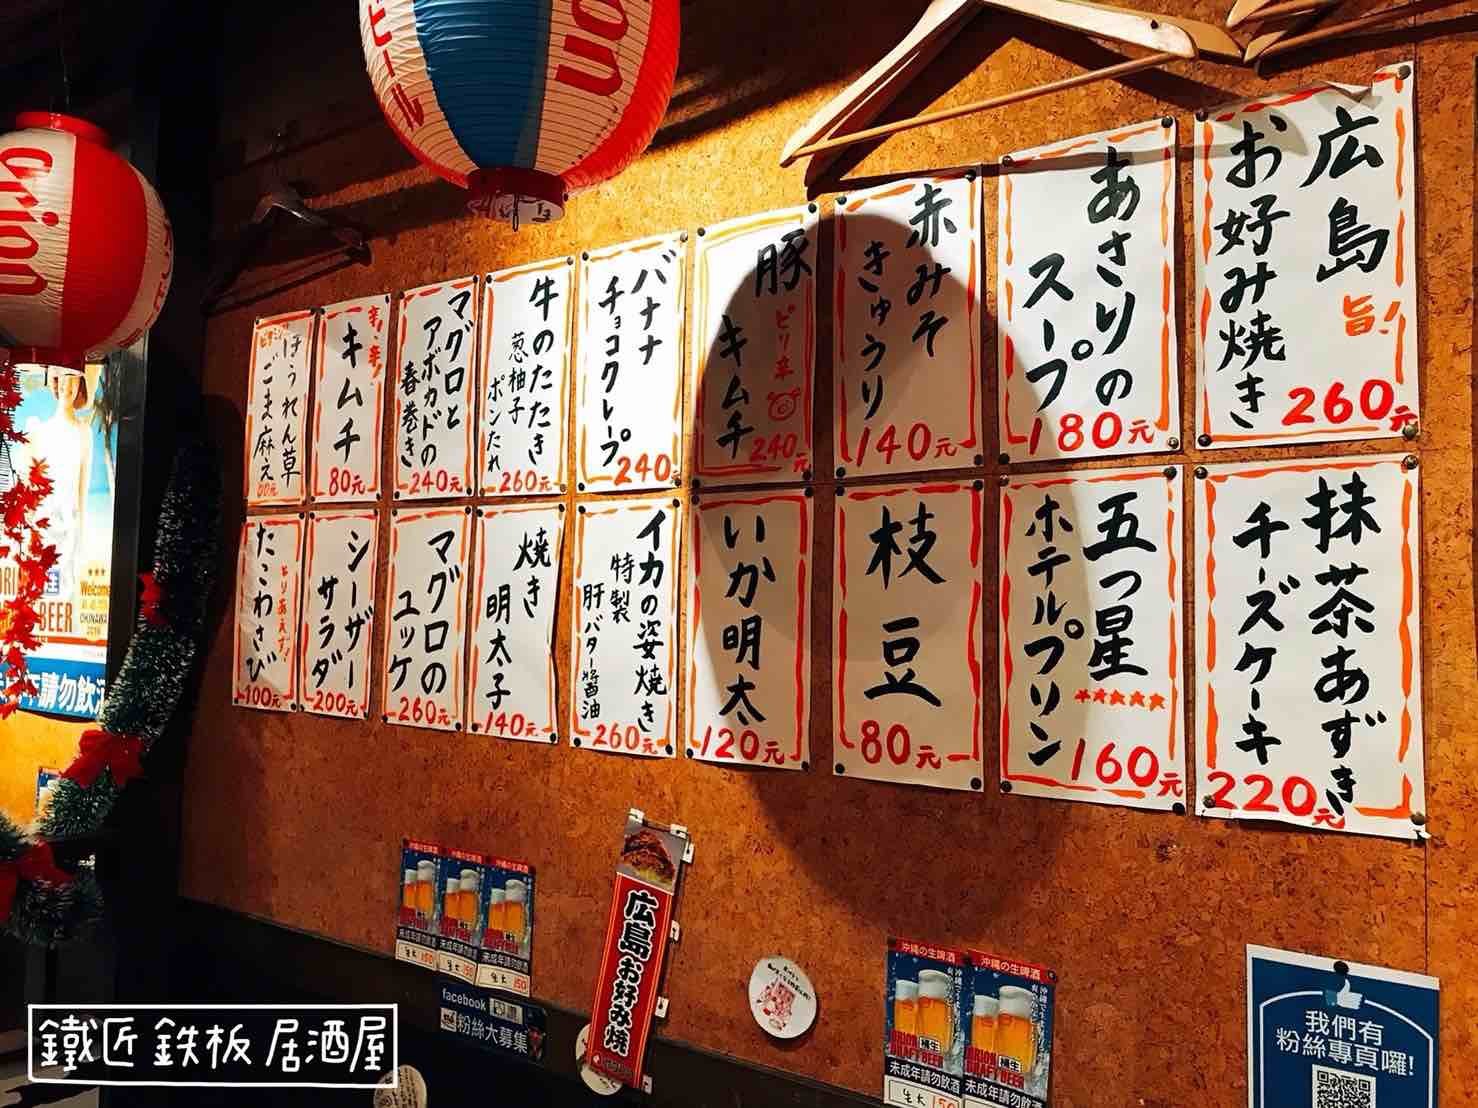 ビール
orion
orion
広島
お好み焼き
旨い
260元
あさりの
スープ
180元
赤みそ
きゅうり
140元
豚
ピリ辛
キムチ
240元
バナナ
チョコクレープ
240元
牛のたたき
葱柚子
ポンたれ
260元
マグロと
アボカドの
春巻き
240元
辛!辛!
キムチ
80元
ほうれん草
ごま麻え
抹茶あずき
チーズケーキ
220元
五つ星
★★★★★
ホテルプリン
160元
枝豆
80元
いか明太
120元
イカの姿焼き
特製
肝バター醤油
260元
焼き
明太子
140元
マグロの
ユッケ
260元
シーザー
サラダ
200元
とりあえず!
たこわさび
100元
Welcome
OKINAWA
BEER
年請勿飲酒
沖縄の生啤酒
未成年請勿飲酒
生大 150
facebook
粉絲大募集
広島お好み焼
沖縄の生啤酒
ORION
DRAFT BEER
樽生
未成年請勿飲酒
生大 150
沖縄の生啤酒
ORION
DRAFT BEER
樽生
未成年請勿飲酒
我們有
粉絲專頁囉!
鐵匠 鉄板 居酒屋